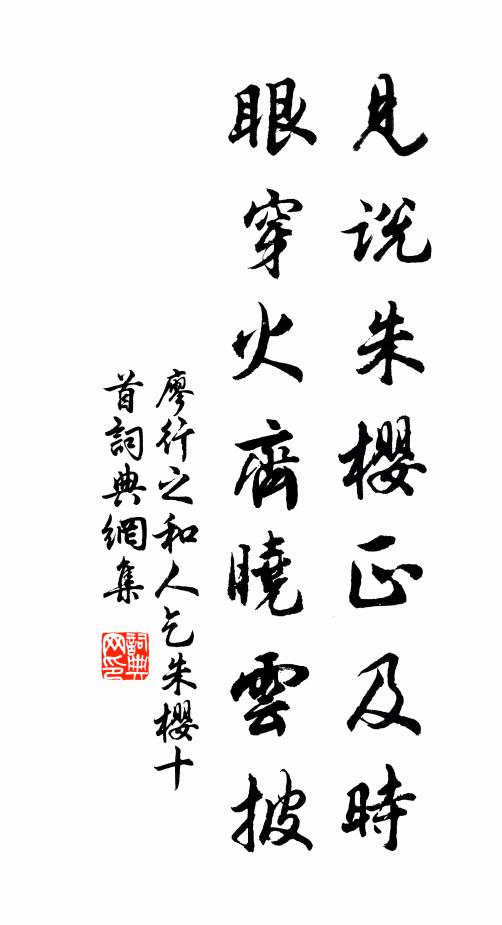 見説朱櫻正及時
眼穿火齊曉雲披
廖行之和人乞朱櫻十
首詞典網集
詞典网印